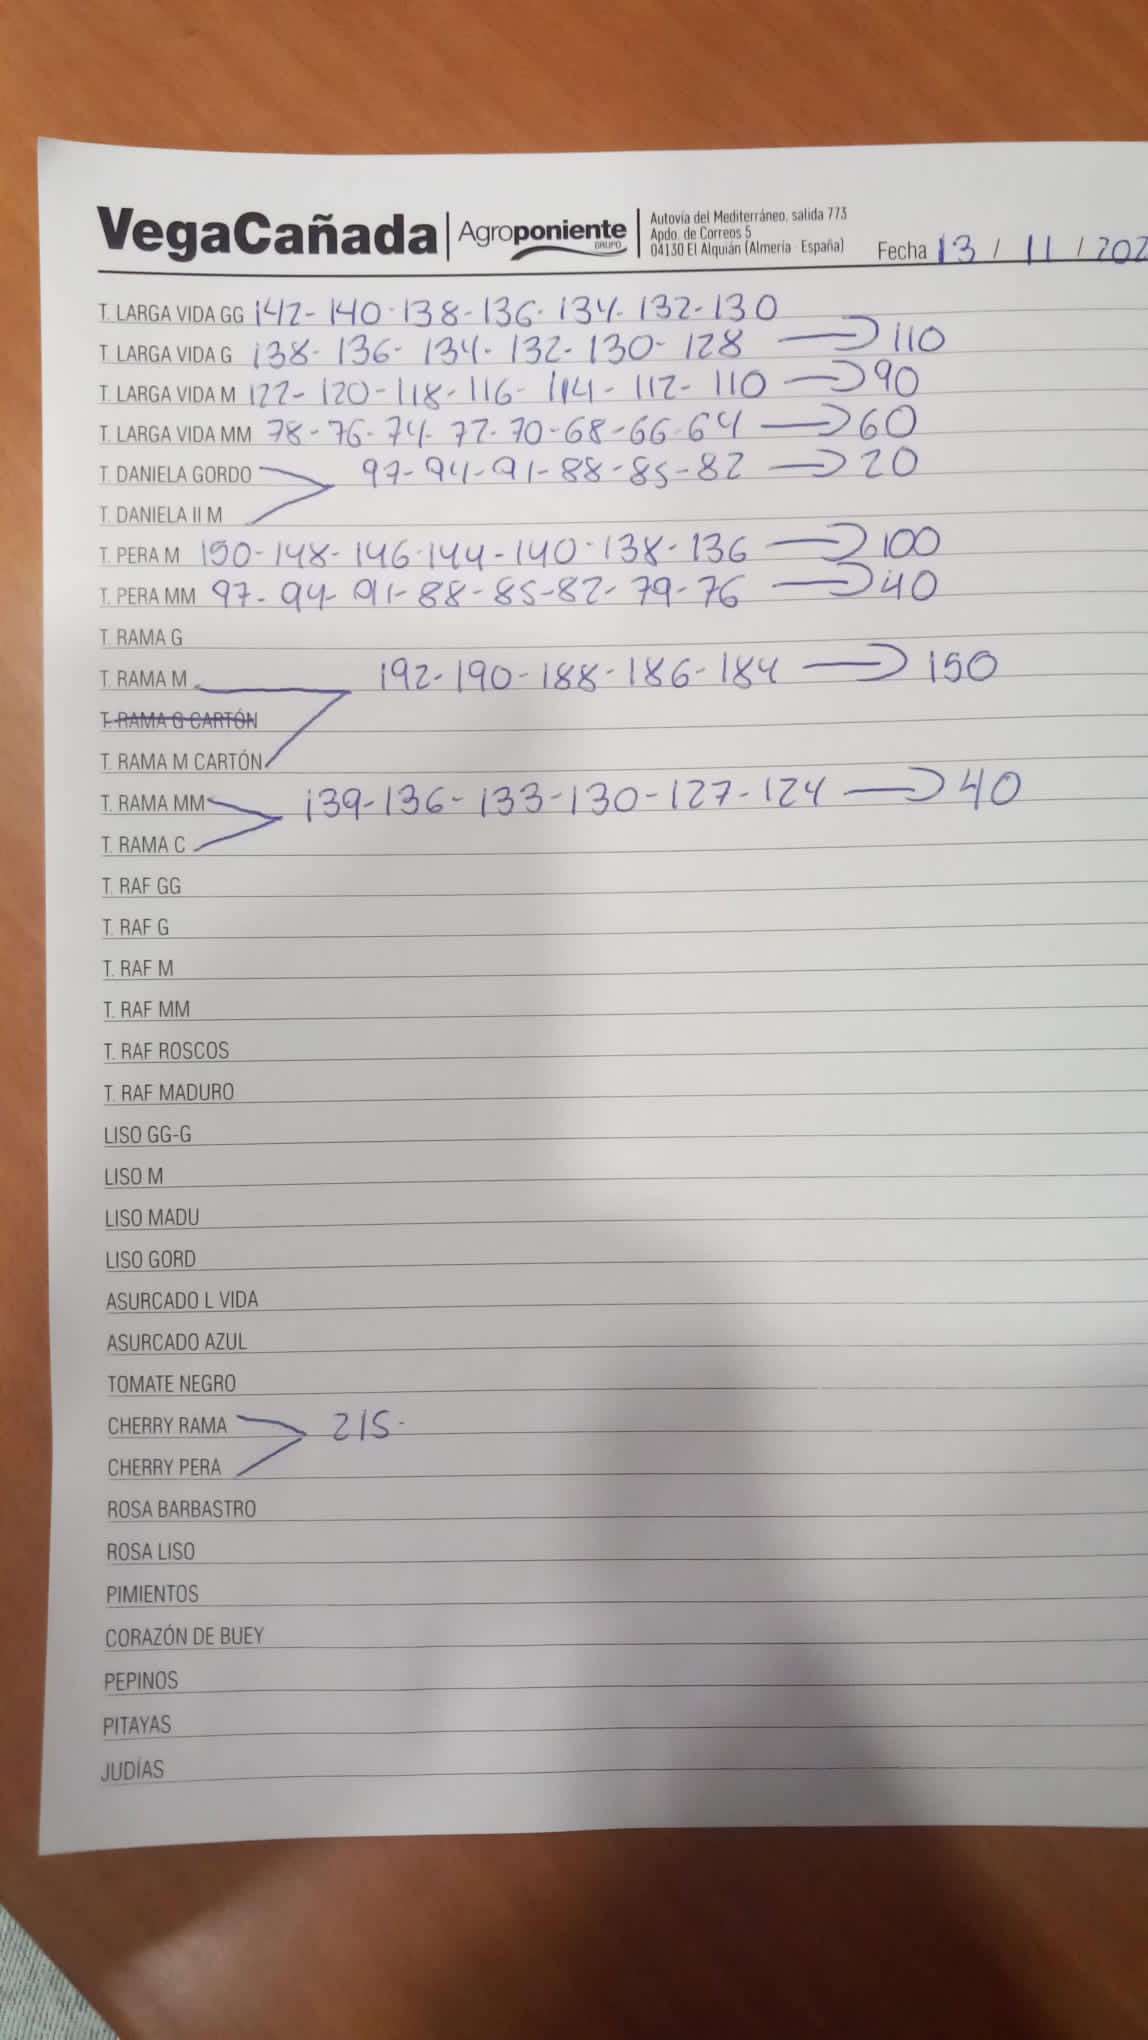 VegaCañada | Agroponiente GRUPO
Autovía del Mediterráneo, salida 773
Apdo. de Correos 5
04130 El Alquián (Almería - España)
Fecha 13 / 11 / 202
T. LARGA VIDA GG 142-140-138-136-134-132-130
T. LARGA VIDA G 138-136-134-132-130-128 → 110
T. LARGA VIDA M 122-120-118-116-114-112-110 → 90
T. LARGA VIDA MM 78-76-74-72-70-68-66-64 → 60
T. DANIELA GORDO 97-94-91-88-85-82 → 20
T. DANIELA II M
T. PERA M 150-148-146-144-140-138-136 → 100
T. PERA MM 97-94-91-88-85-82-79-76 → 40
T. RAMA G
T. RAMA M 192-190-188-186-184 → 150
T. RAMA G CARTÓN
T. RAMA M CARTÓN
T. RAMA MM 139-136-133-130-127-124 → 40
T. RAMA C
T. RAF GG
T. RAF G
T. RAF M
T. RAF MM
T. RAF ROSCOS
T. RAF MADURO
LISO GG-G
LISO M
LISO MADU
LISO GORD
ASURCADO L VIDA
ASURCADO AZUL
TOMATE NEGRO
CHERRY RAMA 215-
CHERRY PERA
ROSA BARBASTRO
ROSA LISO
PIMIENTOS
CORAZÓN DE BUEY
PEPINOS
PITAYAS
JUDÍAS